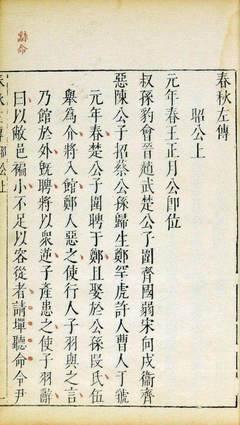 春秋左傳
昭公上
元年春王正月公卽位
叔孫豹會晉趙武楚公子圍齊國弱宋向戌衞齊
惡陳公子招蔡公孫歸生鄭罕虎許人曹人于虢
元年春楚公子圍聘于鄭且娶於公孫段氏伍
舉為介將入館鄭人惡之使行人子羽與之言
乃館於外旣聘將以衆逆子產患之使子羽辭
曰以敝邑褊小不足以容從者請墠聽命令尹
春秋左傳 昭公上